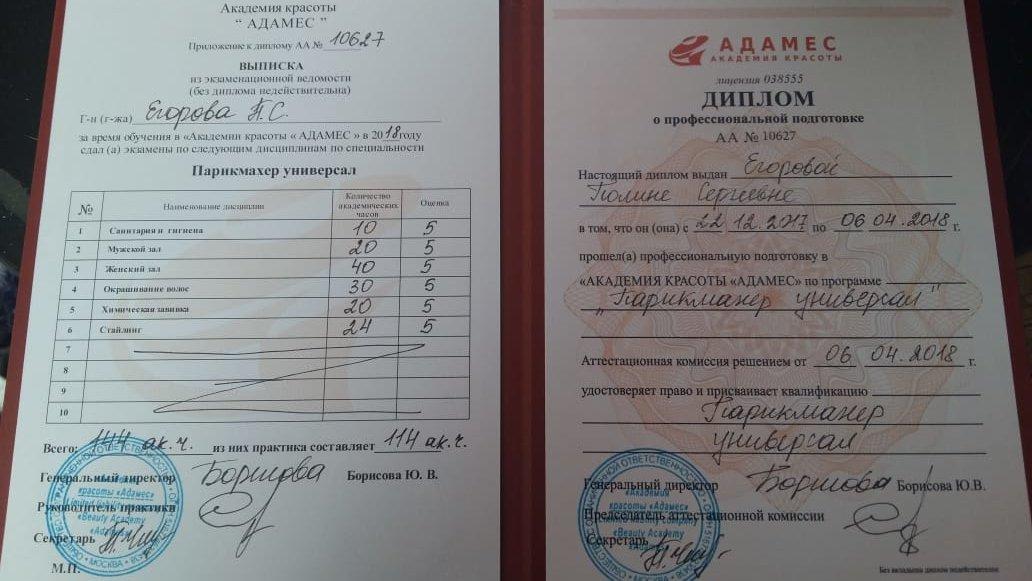 Академия красоты
“ АДАМЕС ”
Приложение к диплому АА № 10627
ВЫПИСКА
из экзаменационной ведомости
(без диплома недействительна)
Г-н (г-жа) Егорова П.С.
за время обучения в «Академии красоты « АДАМЕС » в 2018 году
сдал (а) экзамены по следующим дисциплинам по специальности
Парикмахер универсал
№ Наименование дисциплин Количество академических часов Оценка
1 Санитария и гигиена 10 5
2 Мужской зал 20 5
3 Женский зал 40 5
4 Окрашивание волос 30 5
5 Химическая завивка 20 5
6 Стайлинг 24 5
7
8
9
10
Всего: 144 ак.ч. из них практика составляет 114 ак.ч.
Генеральный директор Борисова Борисова Ю. В.
Руководитель практики
Секретарь
М.П.
«Академия
красоты «Адамес»
Limited liability company
«Beauty Academy
«Adames»
МОСКВА
АДАМЕС
АКАДЕМИЯ КРАСОТЫ
лицензия 038555
ДИПЛОМ
о профессиональной подготовке
АА № 10627
Настоящий диплом выдан Егоровой
Полине Сергевне
в том, что он (она) с 22 12.2017 по 06 04.2018 г.
прошел(а) профессиональную подготовку в
«АКАДЕМИЯ КРАСОТЫ «АДАМЕС» по программе
"Парикмахер универсал"
Аттестационная комиссия решением от 06 04.2018 г.
удостоверяет право и присваивает квалификацию
Парикмахер
универсал
Генеральный директор Борисова Борисова Ю.В.
Председатель аттестационной комиссии
Секретарь
«Академия
красоты «Адамес»
Limited liability company
«Beauty Academy
«Adames»
МОСКВА
Без вкладыша диплом недействителен